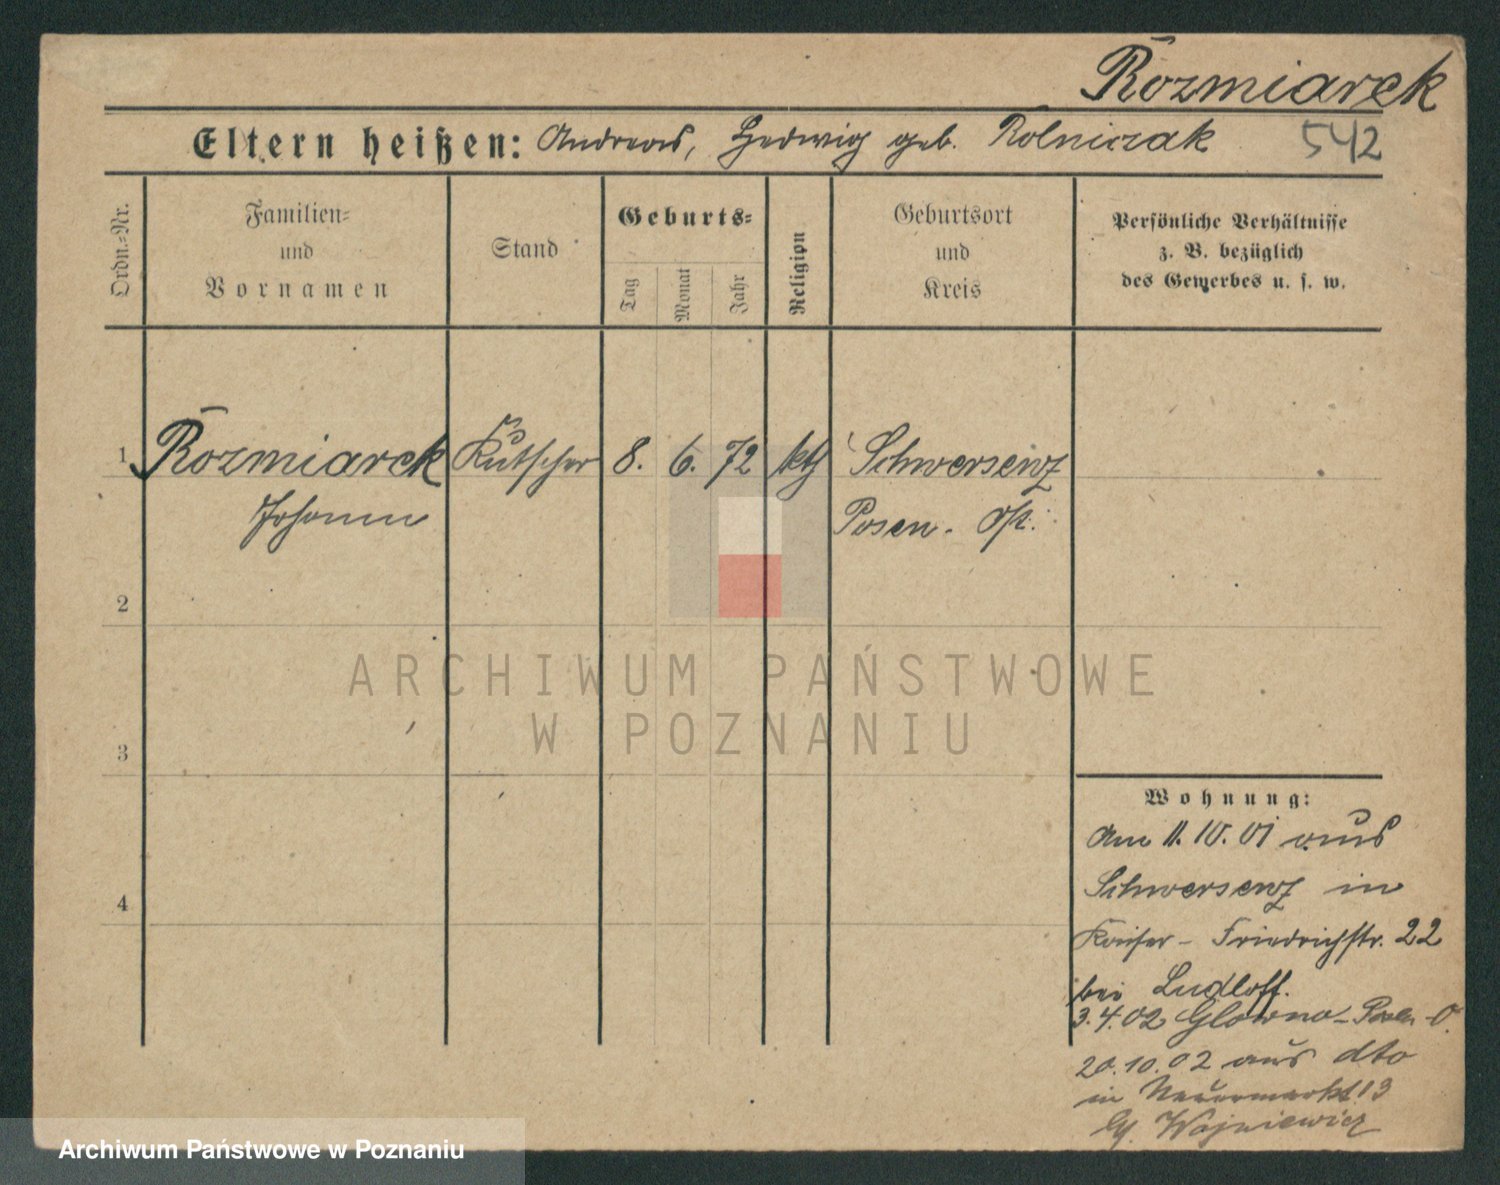 Rozmiarek
Eltern heißen: Andreas, Hedwig geb. Rolniczak 542
Ordn.-Nr.
Familien-
und
Vornamen
Stand
Geburts-
Tag
Monat
Jahr
Religion
Geburtsort
und
Kreis
Persönliche Verhältnisse
z. B. bezüglich
des Gewerbes u. s. w.
1 Rozmiarek Kutscher 8. 6. 72 kth Schwersenz
Johann Posen - Ost.
2
ARCHIWUM PAŃSTWOWE
W POZNANIU
3
Wohnung:
Am 11.10.01 aus
Schwersenz in
4
Kaiser - Friedrichstr. 22
bei Ludloff.
3.4.02 Glowno - Posen - O.
20.10.02 aus dto
in Neuermarkt 13
Wojniewicz
Archiwum Państwowe w Poznaniu